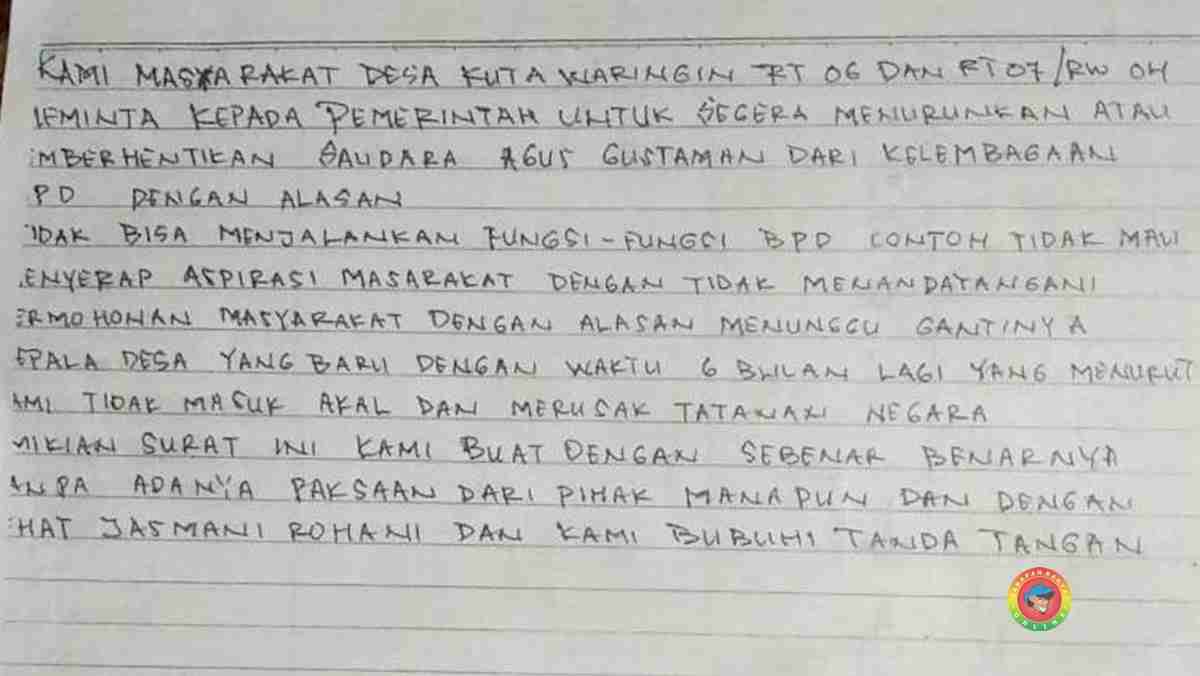 KAMI MASYARAKAT DESA KUTA WARINGIN RT 06 DAN RT 07/RW 04
EMINTA KEPADA PEMERINTAH UNTUK SEGERA MENURUNKAN ATAU
MBERHENTIKAN SAUDARA AGUS GUSTAMAN DARI KELEMBAGAAN
PD DENGAN ALASAN
IDAK BISA MENJALANKAN FUNGSI-FUNGSI BPD CONTOH TIDAK MAU
ENYERAP ASPIRASI MASARAKAT DENGAN TIDAK MENANDATANGANI
ERMOHONAN MASYARAKAT DENGAN ALASAN MENUNGGU GANTINYA
EPALA DESA YANG BARU DENGAN WAKTU 6 BULAN LAGI YANG MENURUT
AMI TIDAK MASUK AKAL DAN MERUSAK TATANAN NEGARA
MIKIAN SURAT INI KAMI BUAT DENGAN SEBENAR BENARNYA
ANPA ADANYA PAKSAAN DARI PIHAK MANAPUN DAN DENGAN
EHAT JASMANI ROHANI DAN KAMI BUBUHI TANDA TANGAN
ONLINE